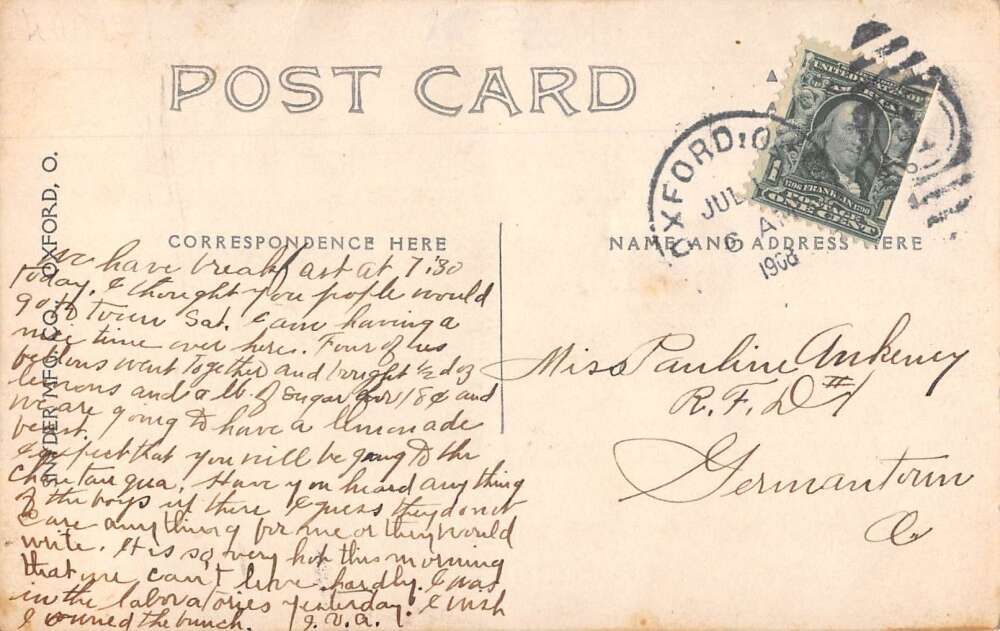 POST CARD
SNYDER MFG. CO., OXFORD, O.
CORRESPONDENCE HERE
NAME AND ADDRESS HERE
OXFORD, O
JUL
6 A
1908
UNITED STATES OF
AMERICA
1706 FRANKLIN 1790
1 ONE CENT 1
We have breakfast at 7:30
today. I thought you people would
go to town Sat. I am having a
nice time over here. Four of us
went together and bought ½ doz
lemons and a lb. of sugar for 18¢ and
we are going to have a lemonade
I expect that you will be going to the
Chautauqua. Have you heard anything
of the boys up there I guess they do not
care anything for me or they would
write. It is so very hot this morning
that we can't live hardly. I was
in the laboratories yesterday. I wish
I owned the bunch. J.V.A.
Miss Pauline Ankeney
R.F.D #1
Germantown
O.